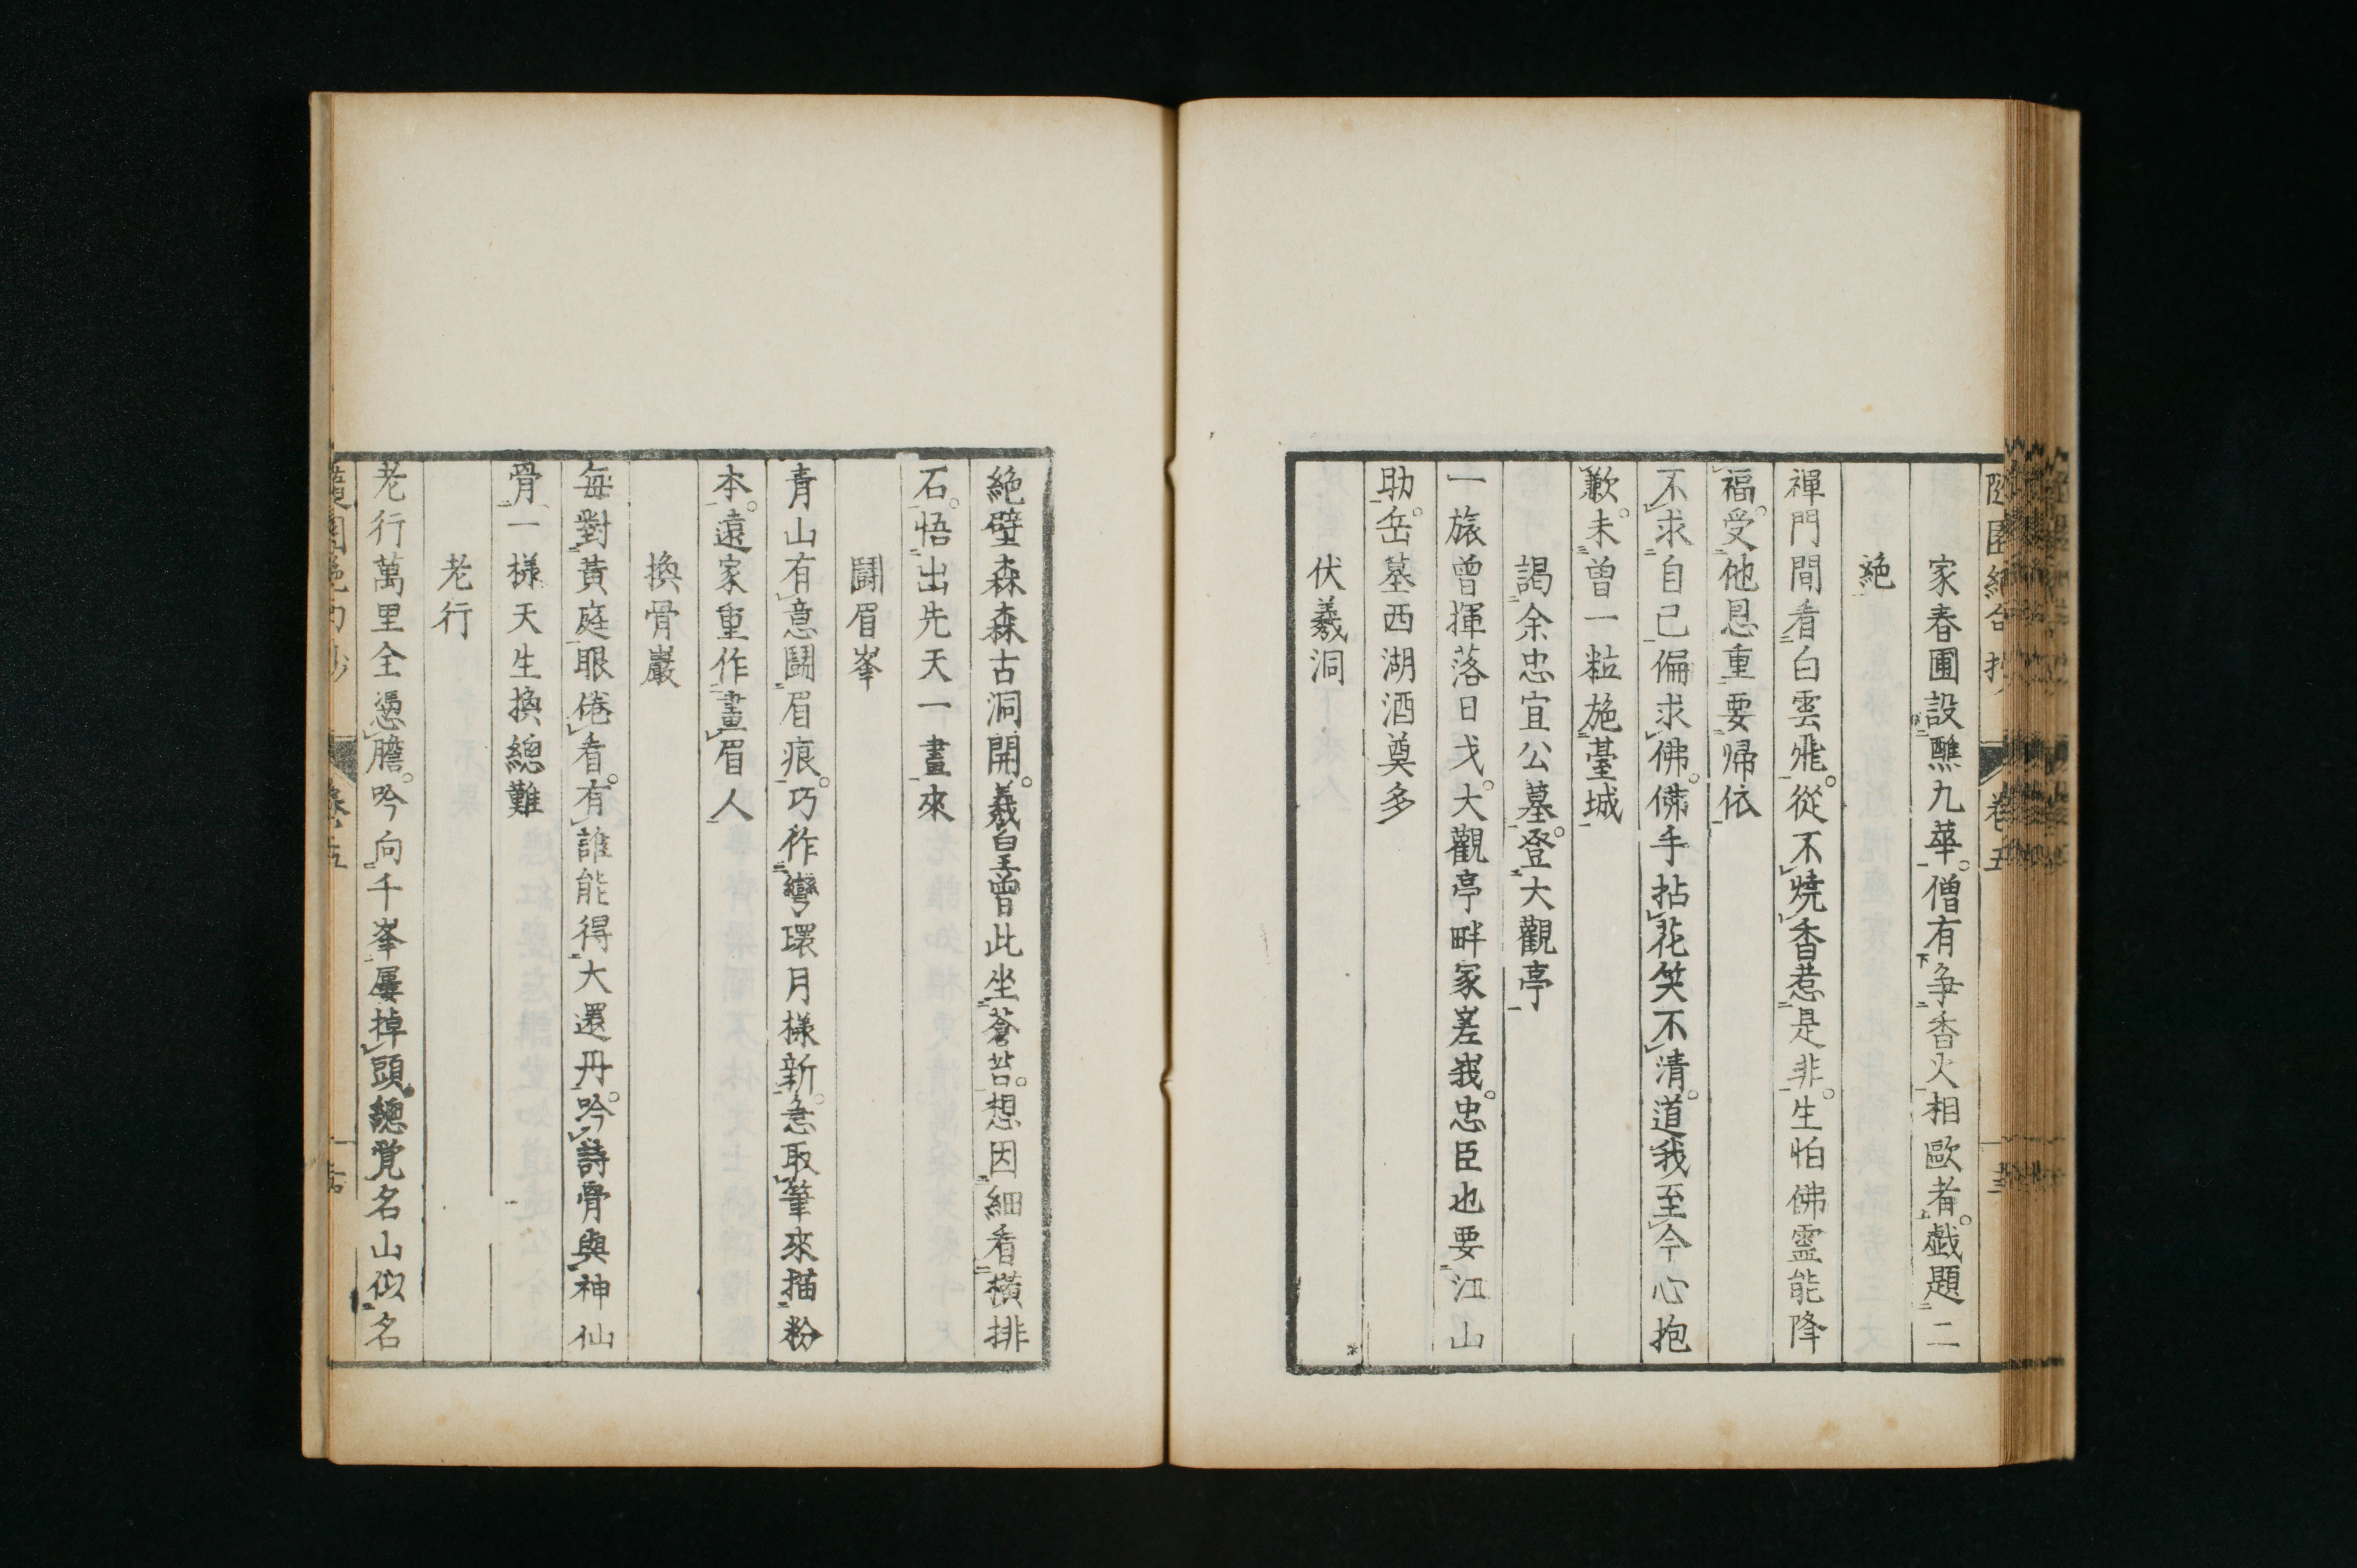 隨園絶句抄 卷五
家春圃設醮九華。僧有爭香火相歐者。戲題二
絶
禪門閒看白雲飛。從不燒香惹是非。生怕佛靈能降
福。受他恩重要帰依
不求自己偏求佛。佛手拈花笑不清。道我至今心抱
歉。未曽一粒施臺城
謁余忠宜公墓。登大觀亭
一旅曾揮落日戈。大觀亭畔冢嵳峩。忠臣也要江山
助。岳墓西湖酒奠多
伏羲洞
絶壁森森古洞開。羲皇曾此坐蒼苔。想因細看橫排
石。悟出先天一畫來
鬪眉峯
青山有意鬪眉痕。巧作彎環月樣新。急取筆來描粉
本。遠家重作畫眉人
換骨巖
每對黄庭眼倦看。有誰能得大還丹。吟詩骨與神仙
骨一様天生換總難
老行
老行萬里全憑膽。吟向千峯屢掉頭。總覚名山似名
卷五